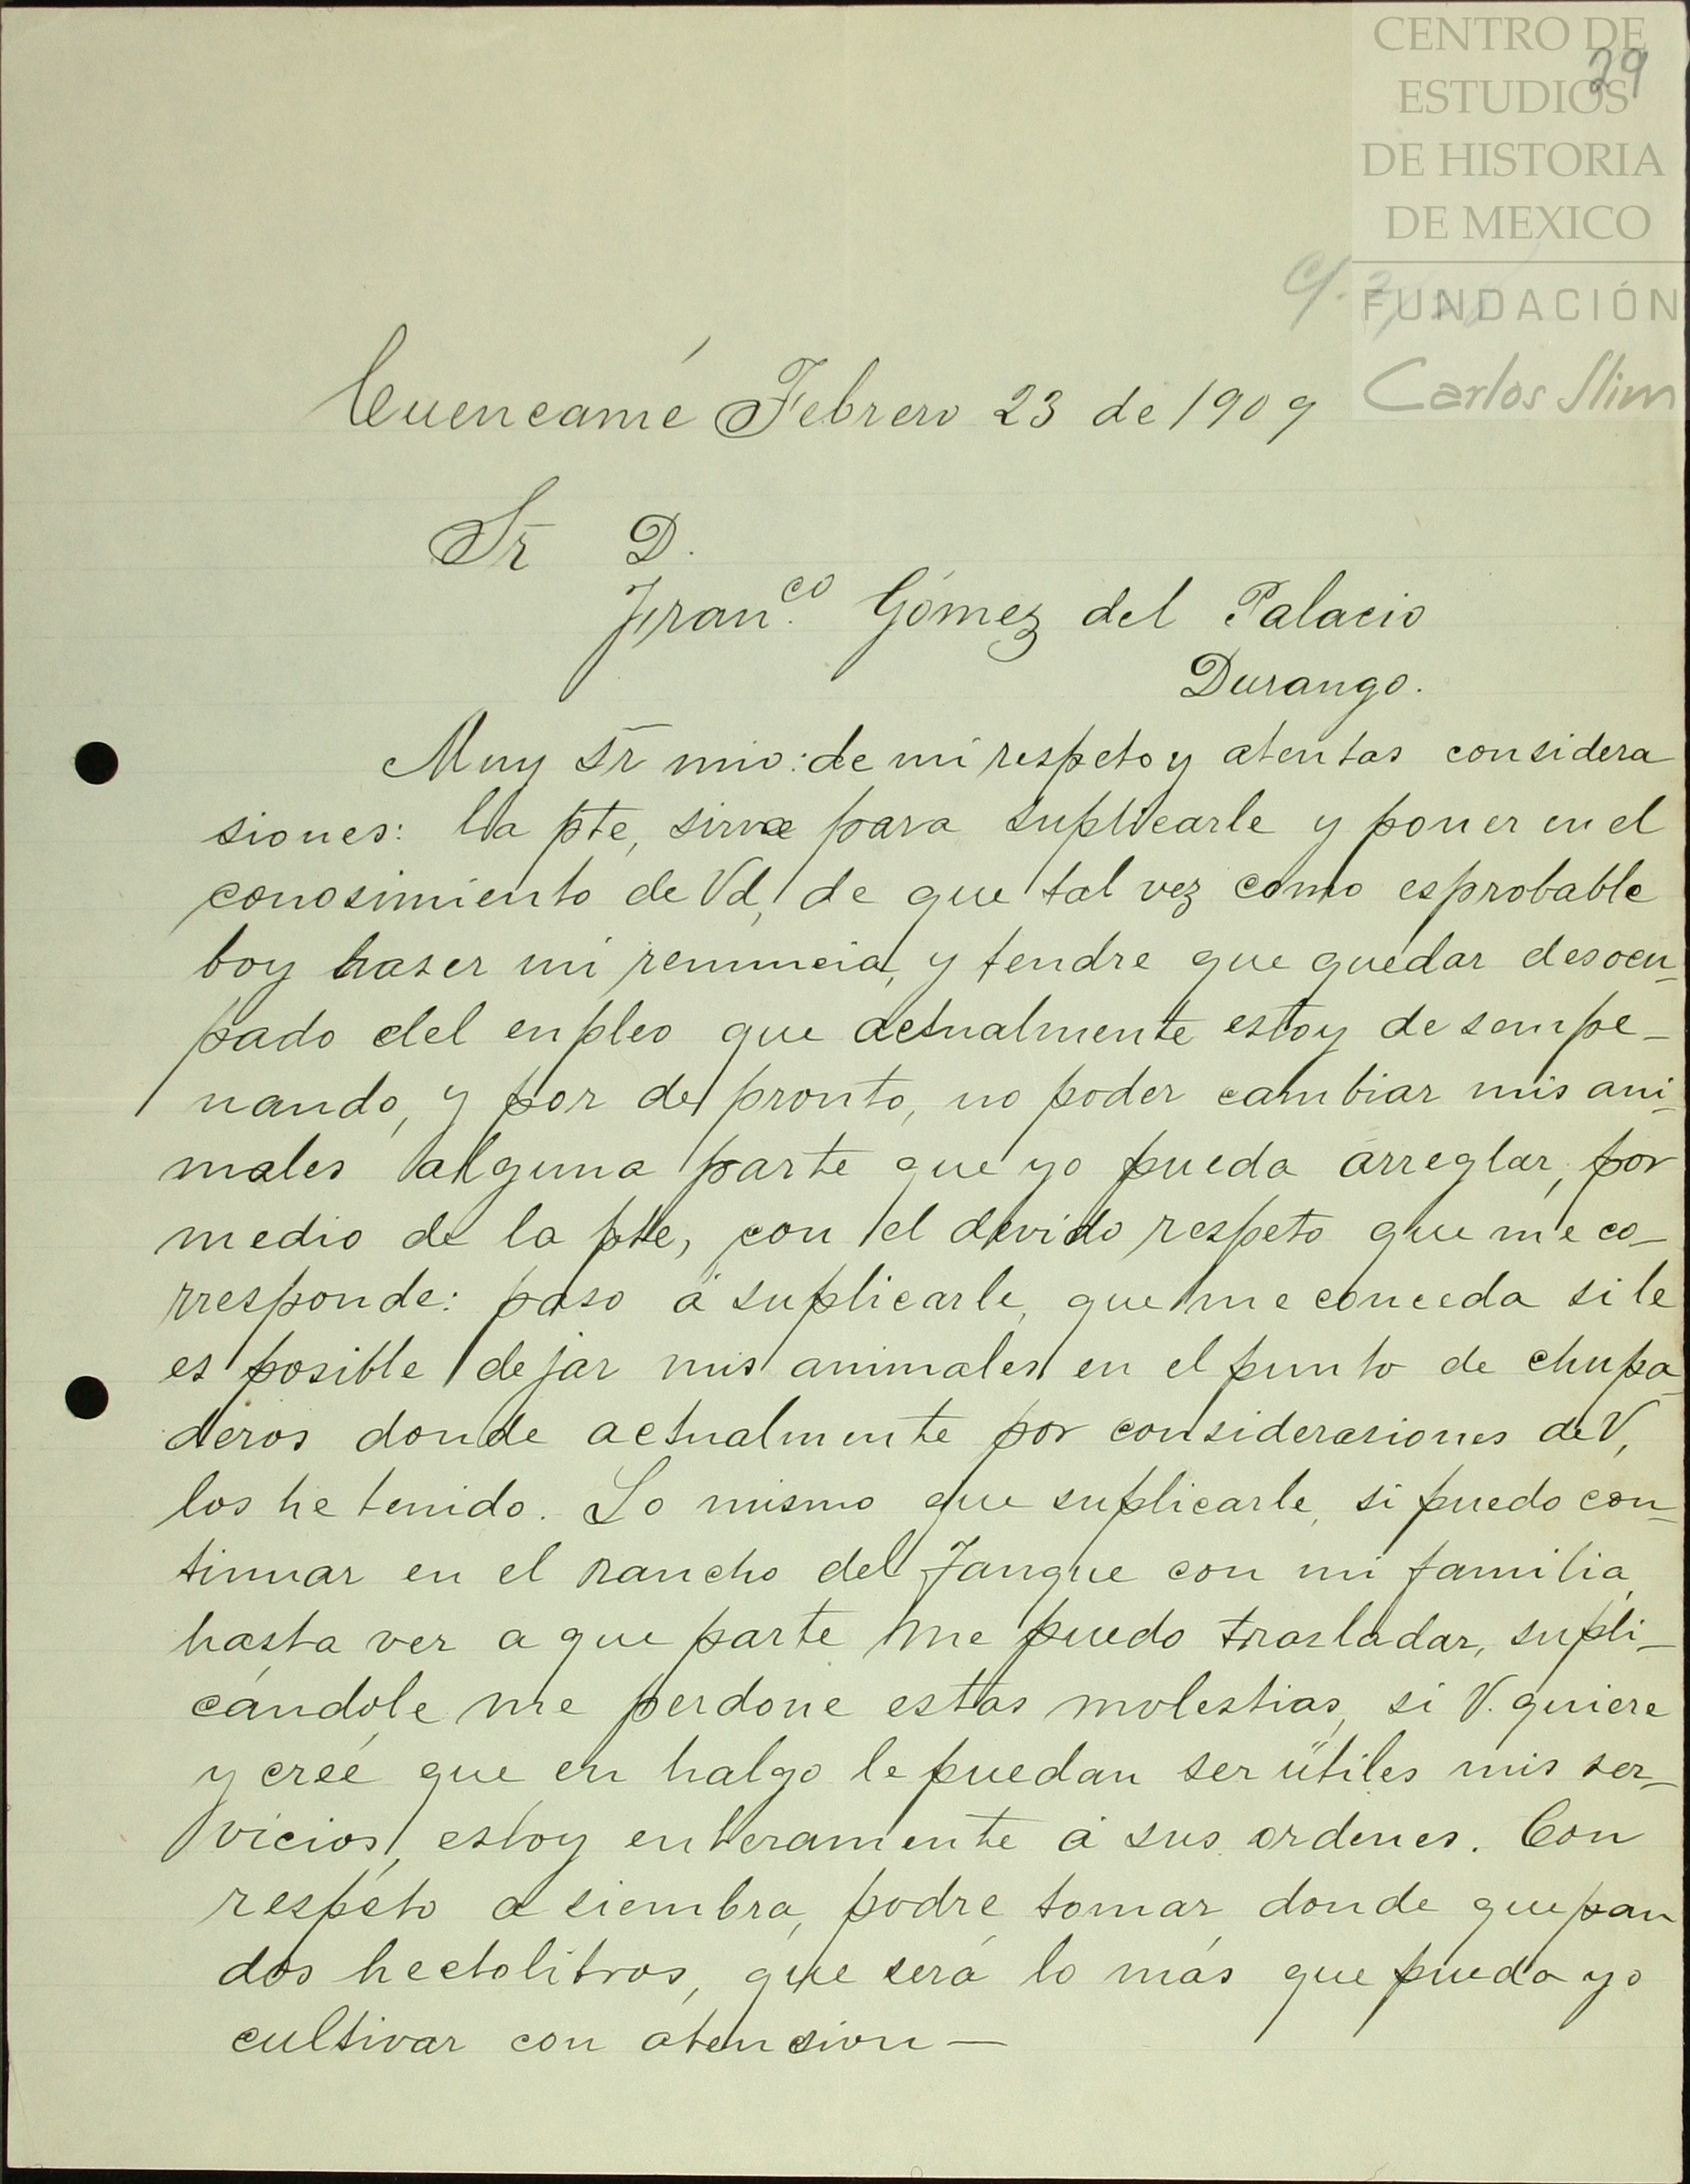 CENTRO DE
ESTUDIOS
DE HISTORIA
DE MEXICO
FUNDACIÓN
Carlos Slim
29
Cuencamé Febrero 23 de 1909
Sr D.
Fran.co Gómez del Palacio
Durango.
Muy Sr mio: de mi respeto y atentas considera
siones: la pte, sirve para suplicarle y poner en el
conosimiento de Vd, de que tal vez como esprobable
boy haser mi renuncia, y tendre que quedar desocu-
pado del enpleo que actualmente estoy desempe-
nando, y por de pronto, no poder cambiar mis ani-
males alguna parte que yo pueda arreglar, por
medio de la pte, con el devido respeto que me co-
rresponde: paso á suplicarle, que me conceda si le
es posible dejar mis animales en el punto de chupa-
deros donde actualmente por considerasiones de V,
los he tenido. Lo mismo que suplicarle, si puedo con-
tinuar en el rancho del Tanque con mi familia,
hasta ver a que parte me puedo trasladar, supli-
cándole me perdone estas molestias, si V. quiere
y creé que en halgo le puedan ser útiles mis ser-
vicios, estoy enteramente á sus ordenes. Con
respeto a siembra, podre tomar donde quepan
dos hectolitros, que será lo más que pueda yo
cultivar con atension—